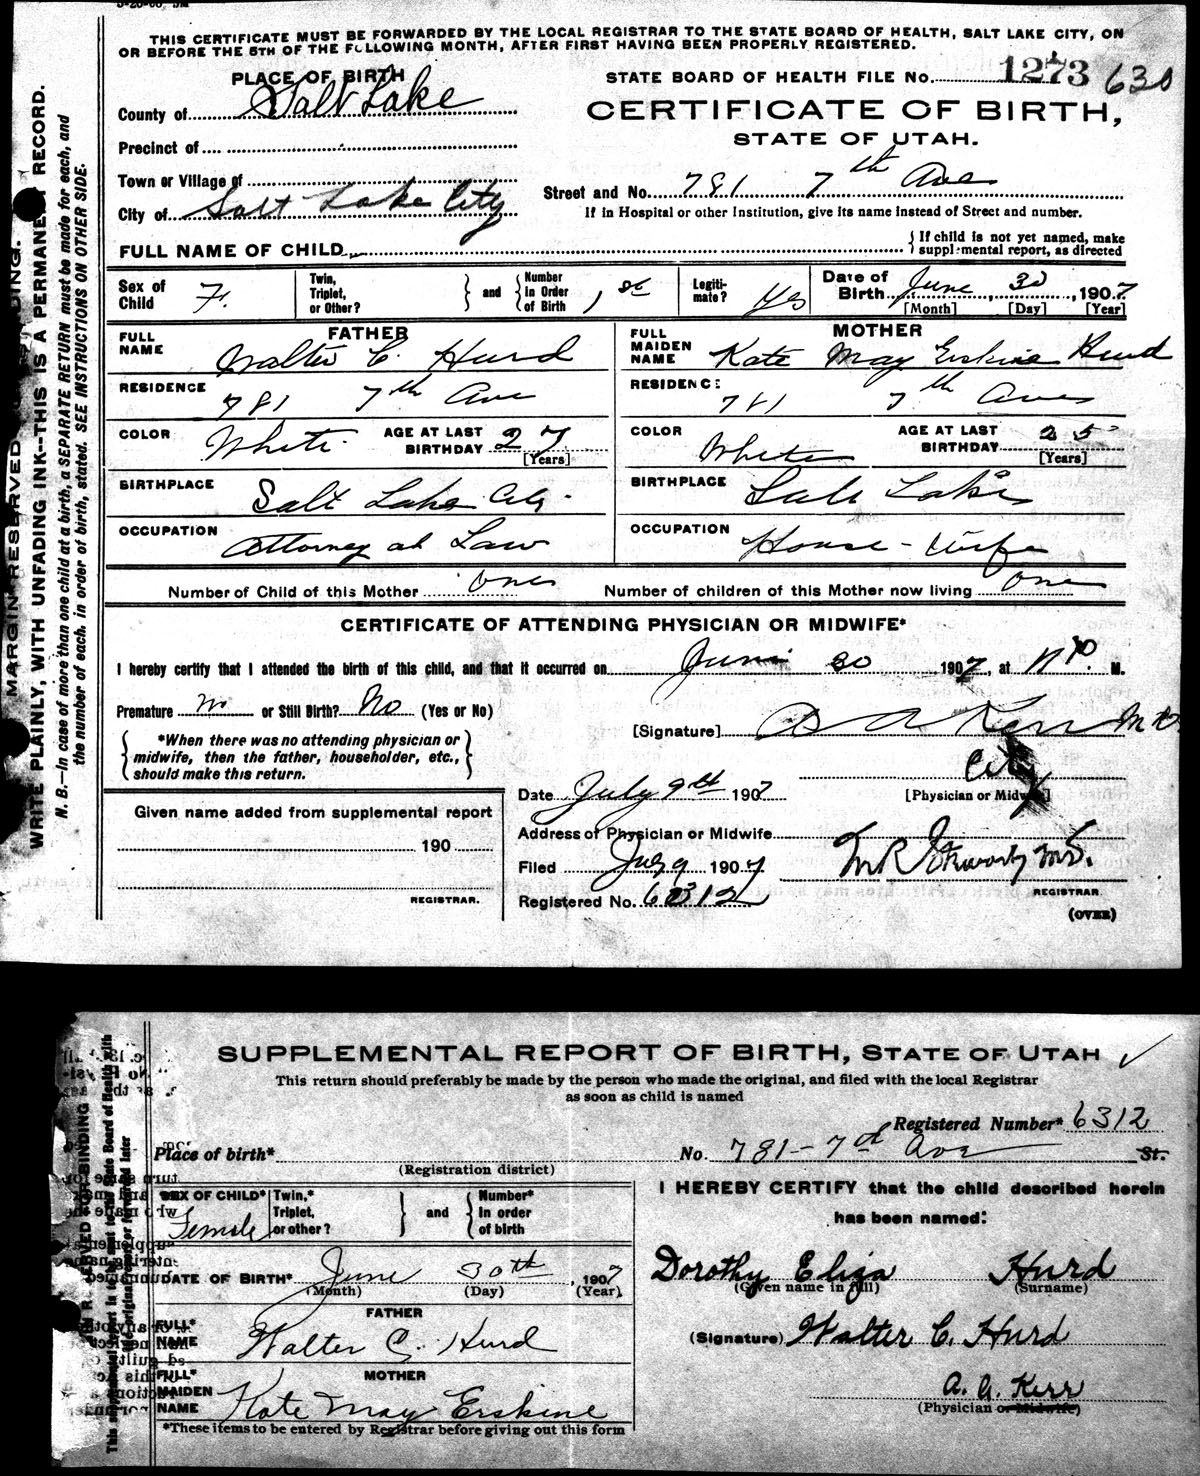 THIS CERTIFICATE MUST BE FORWARDED BY THE LOCAL REGISTRAR TO THE STATE BOARD OF HEALTH, SALT LAKE CITY, ON
OR BEFORE THE 5TH OF THE FOLLOWING MONTH, AFTER FIRST HAVING BEEN PROPERLY REGISTERED.
PLACE OF BIRTH
STATE BOARD OF HEALTH FILE No. 1273 630
County of Salt Lake
CERTIFICATE OF BIRTH,
STATE OF UTAH.
Precinct of
Town or Village of
Street and No. 781 7th Ave
City of Salt Lake City
If in Hospital or other Institution, give its name instead of Street and number.
FULL NAME OF CHILD
If child is not yet named, make
supplemental report, as directed
Sex of Child F. Twin, Triplet, or Other? and Number in Order of Birth 1st Legiti-mate? Yes Date of Birth June 30, 1907
[Month] [Day] [Year]
FATHER
FULL NAME Walter C. Hurd
RESIDENCE 781 7th Ave
COLOR White AGE AT LAST BIRTHDAY 27
[Years]
BIRTHPLACE Salt Lake City.
OCCUPATION Attorney at Law
MOTHER
FULL MAIDEN NAME Kate May Erskine Hurd
RESIDENCE 781 7th Ave
COLOR White AGE AT LAST BIRTHDAY 25
[Years]
BIRTHPLACE Salt Lake
OCCUPATION House-Wife
Number of Child of this Mother one Number of children of this Mother now living one
CERTIFICATE OF ATTENDING PHYSICIAN OR MIDWIFE*
I hereby certify that I attended the birth of this child, and that it occurred on June 30 1907, at M.
Premature No or Still Birth? No (Yes or No)
[Signature] A Kerr M D
*When there was no attending physician or
midwife, then the father, householder, etc.,
should make this return.
City
[Physician or Midwife]
Date July 9th 1907
Given name added from supplemental report
190
REGISTRAR.
Address of Physician or Midwife
Filed July 9 1907
REGISTRAR.
Registered No. 6312
(OVER)
MARGIN RESERVED DING.
WRITE PLAINLY, WITH UNFADING INK--THIS IS A PERMANENT RECORD.
N. B.—In case of more than one child at a birth, a SEPARATE RETURN must be made for each, and
the number of each, in order of birth, stated. SEE INSTRUCTIONS ON OTHER SIDE.
SUPPLEMENTAL REPORT OF BIRTH, STATE OF UTAH
This return should preferably be made by the person who made the original, and filed with the local Registrar
as soon as child is named
Registered Number* 6312
Place of birth* No. 781-7th Ave St.
(Registration district)
SEX OF CHILD* Female Twin,* Triplet, or other? and Number* in order of birth
DATE OF BIRTH* June 30th, 1907
(Month) (Day) (Year)
FATHER
FULL* NAME Walter C. Hurd
MOTHER
FULL* MAIDEN NAME Kate May Erskine
*These items to be entered by Registrar before giving out this form
I HEREBY CERTIFY that the child described herein
has been named:
Dorothy Eliza Hurd
(Given name in full) (Surname)
(Signature) Walter C. Hurd
A. A. Kerr
(Physician or Midwife)